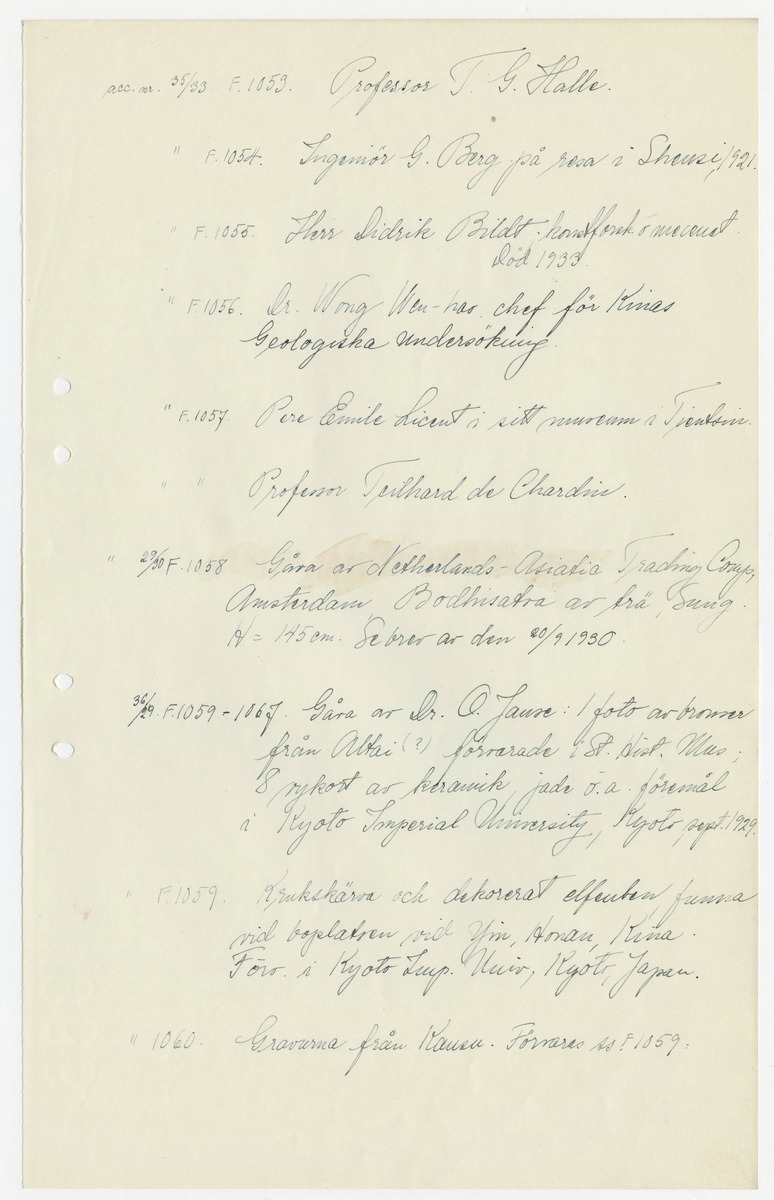 acc. nr. 35/33 F. 1053. Professor T. G. Halle.
" F. 1054. Ingeniör G. Berg på resa i Shensi, 1921.
" F. 1055. Herr Didrik Bildt, konstforsk. o mecenat.
Död 1933.
" F. 1056. Dr. Wong Wen-hao, chef för Kinas
Geologiska Undersökning.
" F. 1057 Pere Emile Licent i sitt museum i Tientsin.
" " Professor Teilhard de Chardin.
" 29/30 F. 1058 Gåva av Netherlands-Asiatia Trading Comp,
Amsterdam, Bodhisatva av trä, Sung.
H = 145 cm. Se brev av den 20/9 1930.
36/29. F. 1059 - 1067. Gåva av Dr. O. Janse: 1 foto av bronser
från Altai (?) förvarade i St. Hist. Mus;
8 vykort av keramik, jade o. a. föremål
i Kyoto Imperial University, Kyoto, sept. 1929.
" F. 1059. Krukskärva och dekorerat elfenben, funna
vid boplatsen vid Yin, Honan, Kina.
Förv. i Kyoto Imp. Univ., Kyoto, Japan.
" 1060. Gravurna från Kansu. Förvaras ss F 1059.